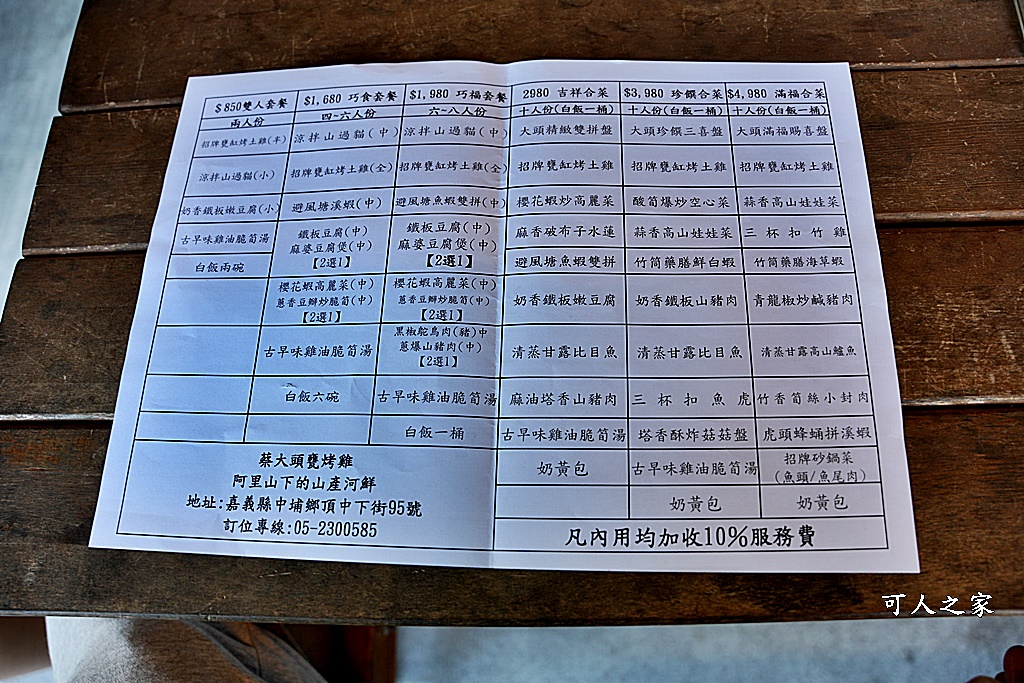 $850雙人套餐 $1,680 巧食套餐 $1,980 巧福套餐 2980 吉祥合菜 $3,980 珍饌合菜 $4,980 滿福合菜
兩人份 四-六人份 六-八人份 十人份(白飯一桶) 十人份(白飯一桶) 十人份(白飯一桶)
招牌甕缸烤土雞(半) 涼拌山過貓(中) 涼拌山過貓(中) 大頭精緻雙拼盤 大頭珍饌三喜盤 大頭滿福賜喜盤
涼拌山過貓(小) 招牌甕缸烤土雞(全) 招牌甕缸烤土雞(全) 招牌甕缸烤土雞 招牌甕缸烤土雞 招牌甕缸烤土雞
奶香鐵板嫩豆腐(小) 避風塘溪蝦(中) 避風塘魚蝦雙拼(中) 櫻花蝦炒高麗菜 酸筍爆炒空心菜 蒜香高山娃娃菜
古早味雞油脆筍湯 鐵板豆腐(中) 鐵板豆腐(中) 麻香破布子水蓮 蒜香高山娃娃菜 三杯扣竹雞
麻婆豆腐煲(中) 麻婆豆腐煲(中)
白飯兩碗 【2選1】 【2選1】 避風塘魚蝦雙拼 竹筒藥膳鮮白蝦 竹筒藥膳海草蝦
櫻花蝦高麗菜(中) 櫻花蝦高麗菜(中) 奶香鐵板嫩豆腐 奶香鐵板山豬肉 青龍椒炒鹹豬肉
蔥香豆瓣炒脆筍(中) 蔥香豆瓣炒脆筍(中)
【2選1】 【2選1】
古早味雞油脆筍湯 黑椒鴕鳥肉(豬)中 清蒸甘露比目魚 清蒸甘露比目魚 清蒸甘露高山鱸魚
蔥爆山豬肉(中)
【2選1】
白飯六碗 古早味雞油脆筍湯 麻油塔香山豬肉 三杯扣魚虎 竹香筍絲小封肉
白飯一桶 古早味雞油脆筍湯 塔香酥炸菇菇盤 虎頭蜂蛹拼溪蝦
奶黃包 古早味雞油脆筍湯 招牌砂鍋菜
(魚頭/魚尾肉)
奶黃包 奶黃包
蔡大頭甕烤雞
阿里山下的山產河鮮
地址:嘉義縣中埔鄉頂中下街95號
訂位專線:05-2300585
凡內用均加收10%服務費
可人之家